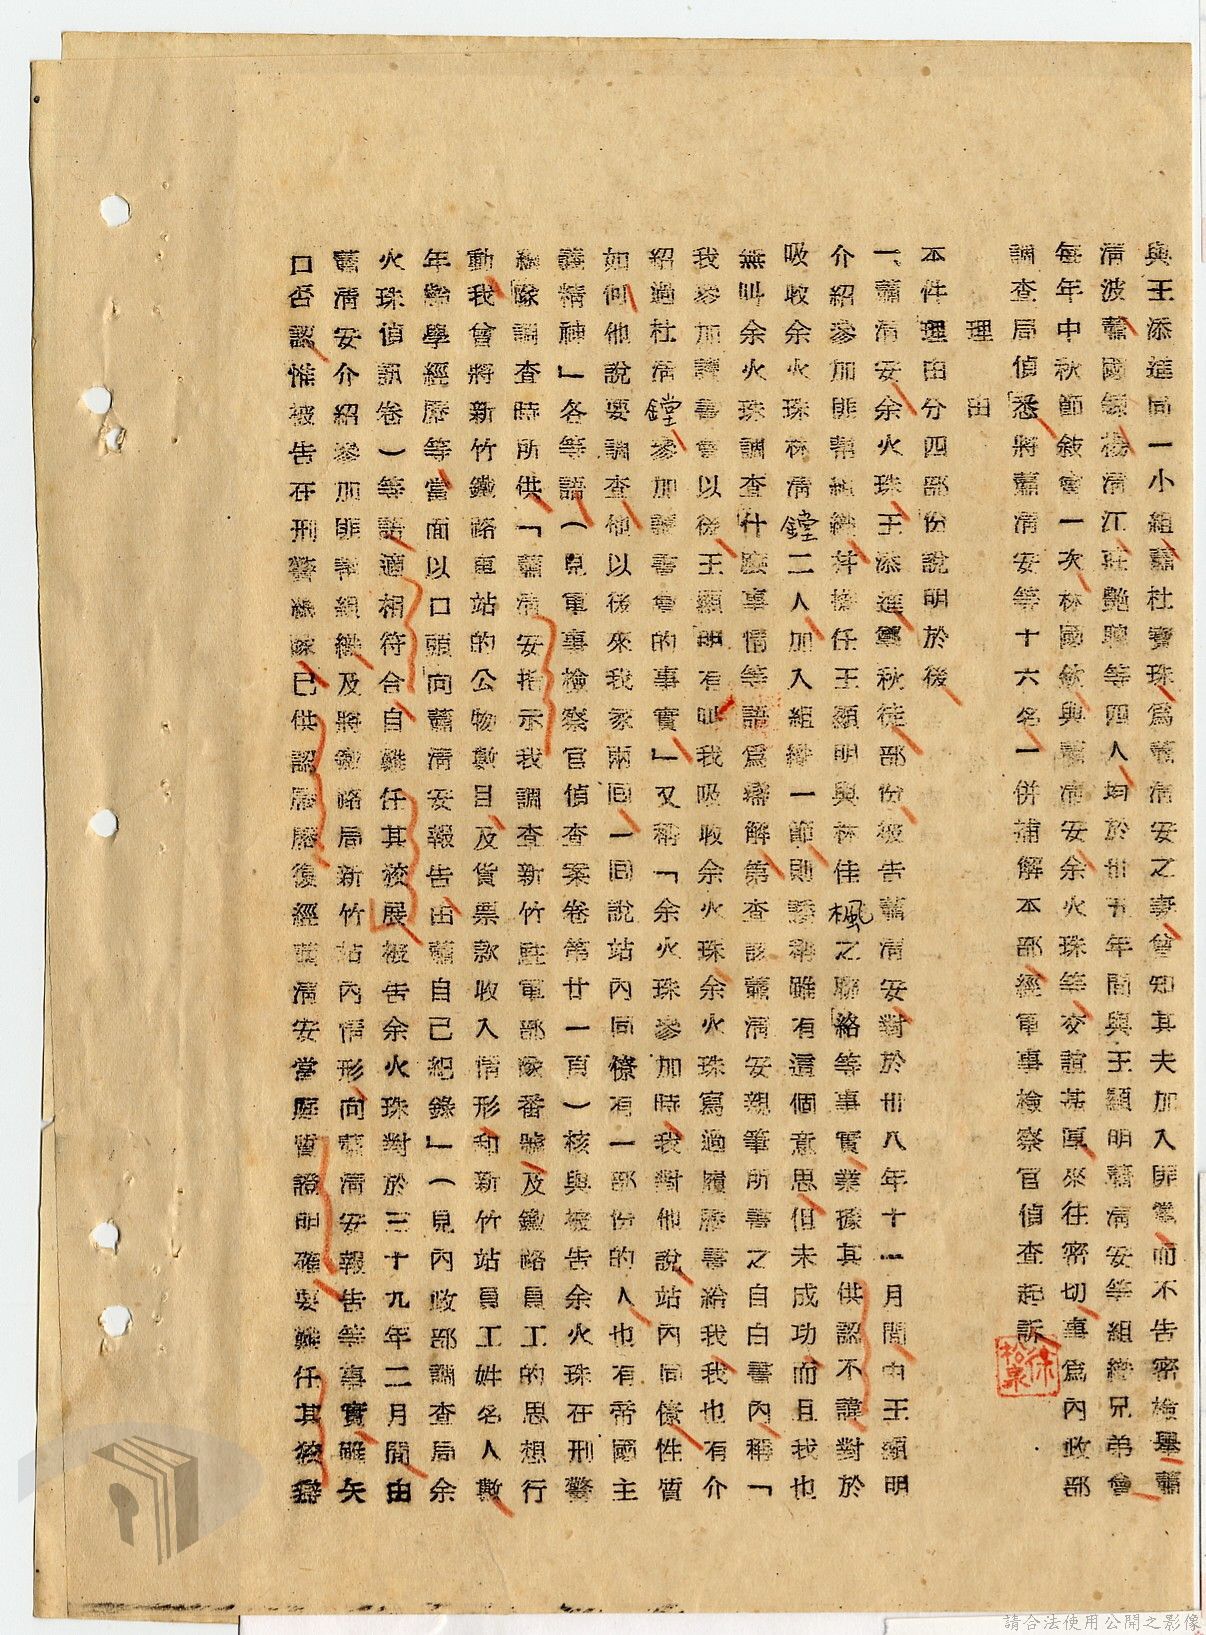 與王添進同一小組蕭杜寶珠為蕭清安之妻曾知其夫加入匪黨而不告密檢舉蕭
清波蕭國楨楼清江莊艷驄等四人均於卅五年間與王顯明蕭清安等組織兄弟會
每年中秋節敍會一次林國欽與蕭清安余火珠等交誼甚厚來往密切事為內政部
調查局偵悉將蕭清安等十六名一併補解本部經軍事檢察官偵查起訴
理由
本件理由分四部份說明於後
一、蕭清安余火珠王添進鄭秋徒部份被告蕭清安對於卅八年十一月間由王顯明
介紹參加匪幫組織并擔任王顯明與林佳楓之聯絡等事實業據其供認不諱對於
吸收余火珠林清鏜二人加入組織一節則諉稱雖有這個意思但未成功而且我也
無叫余火珠調查什麼事情等語為辯解第查該蕭清安親筆所書之自白書內稱「
我參加讀書會以後王顯明有叫我吸收余火珠余火珠寫過履歷書給我我也有介
紹過杜清鏜參加讀書會的事實」又稱「余火珠參加時我對他說站內同僚性質
如何他說要調查他以後來我家兩回一回說站內同僚有一部份的人也有帝國主
義精神」各等語（見軍事檢察官偵查案卷第廿一頁）核與被告余火珠在刑警
總隊調查時所供「蕭清安指示我調查新竹駐軍部隊番號及鐵路員工的思想行
動我曾將新竹鐵路車站的公物數目及貨票款收入情形和新竹站員工姓名人數
年齡學經歷等當面以口頭向蕭清安報告由蕭自己紀錄」（見內政部調查局余
火珠偵訊卷）等語適相符合自難任其狡展被告余火珠對於三十九年二月間由
蕭清安介紹參加匪幫組織及將鐵路局新竹站內情形向蕭清安報告等事實雖矢
口否認惟被告在刑警總隊已供認歷歷復經蕭清安當庭質證明確要難任其狡辯
請合法使用公開之影像